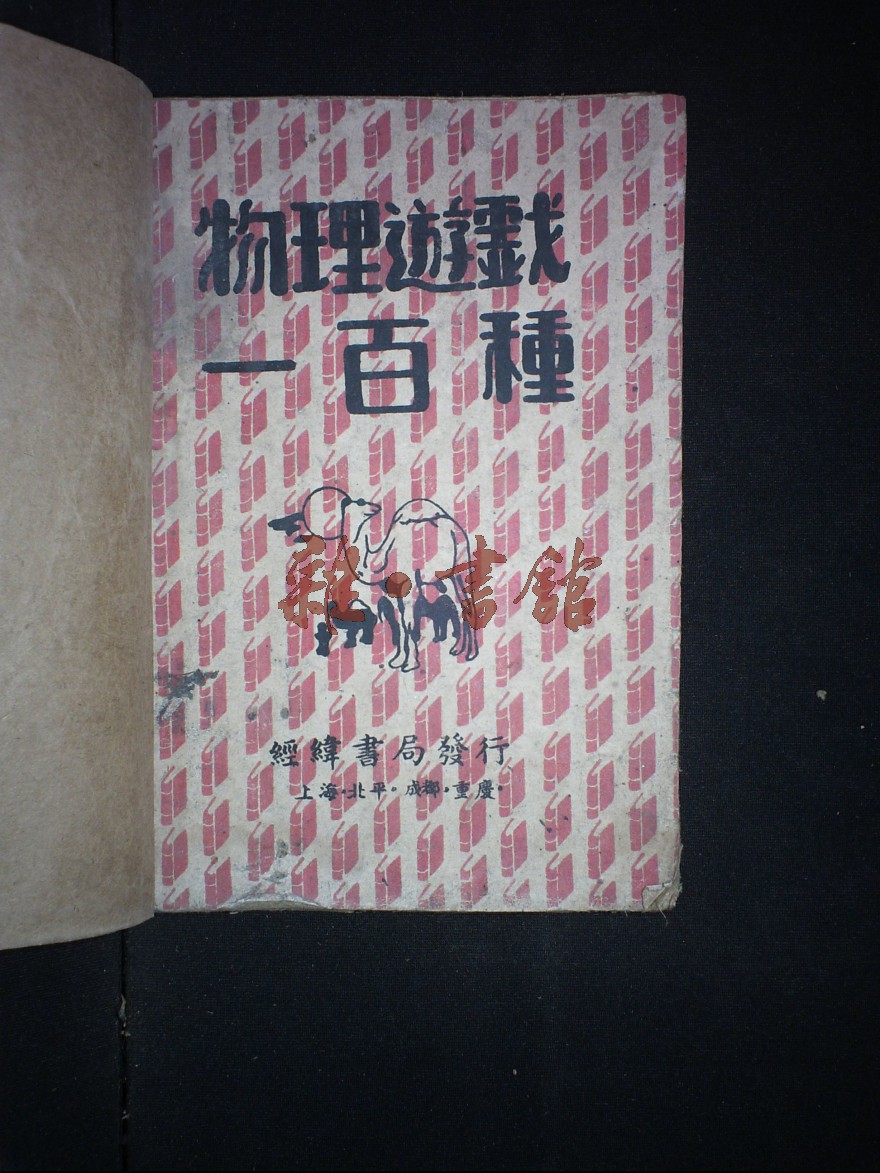 物理遊戲
一百種
雜·書館
經緯書局發行
上海·北平·成都·重慶·